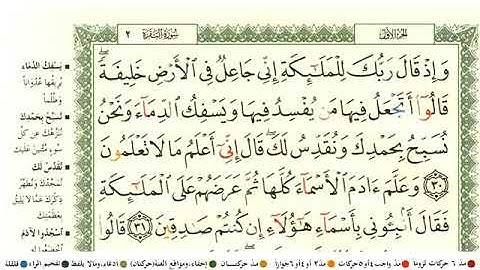 الجزء الأول
سورة البقرة ٢
وَإِذْ قَالَ رَبُّكَ لِلْمَلَٰٓئِكَةِ إِنِّي جَاعِلٌ فِي ٱلْأَرْضِ خَلِيفَةً ۖ
قَالُوٓا۟ أَتَجْعَلُ فِيهَا مَن يُفْسِدُ فِيهَا وَيَسْفِكُ ٱلدِّمَآءَ وَنَحْنُ
نُسَبِّحُ بِحَمْدِكَ وَنُقَدِّسُ لَكَ ۖ قَالَ إِنِّيٓ أَعْلَمُ مَا لَا تَعْلَمُونَ
٣٠ وَعَلَّمَ ءَادَمَ ٱلْأَسْمَآءَ كُلَّهَا ثُمَّ عَرَضَهُمْ عَلَى ٱلْمَلَٰٓئِكَةِ
فَقَالَ أَنۢبِـُٔونِي بِأَسْمَآءِ هَٰٓؤُلَآءِ إِن كُنتُمْ صَٰدِقِينَ ٣١ قَالُوا۟
يَسْفِكُ الدِّمَاء
يُرِيقُهَا عُدْوَاناً
وَظُلْماً
نُسَبِّحُ بِحَمْدِكَ
نُنَزِّهُكَ عَن كُلِّ
نُقَدِّسُ لَكَ
بِعَظَمَتِكَ
اسْجُدُوا لآدَمَ
مد ٦ حركات لزوما
مد ٢ أو ٤ أو ٦ جوازاً
مد واجب ٤ أو ٥ حركات
مد حركتان
إخفاء، ومواقع الغنة (حركتان)
إدغام، وما لا يلفظ
تفخيم الراء
قلقلة